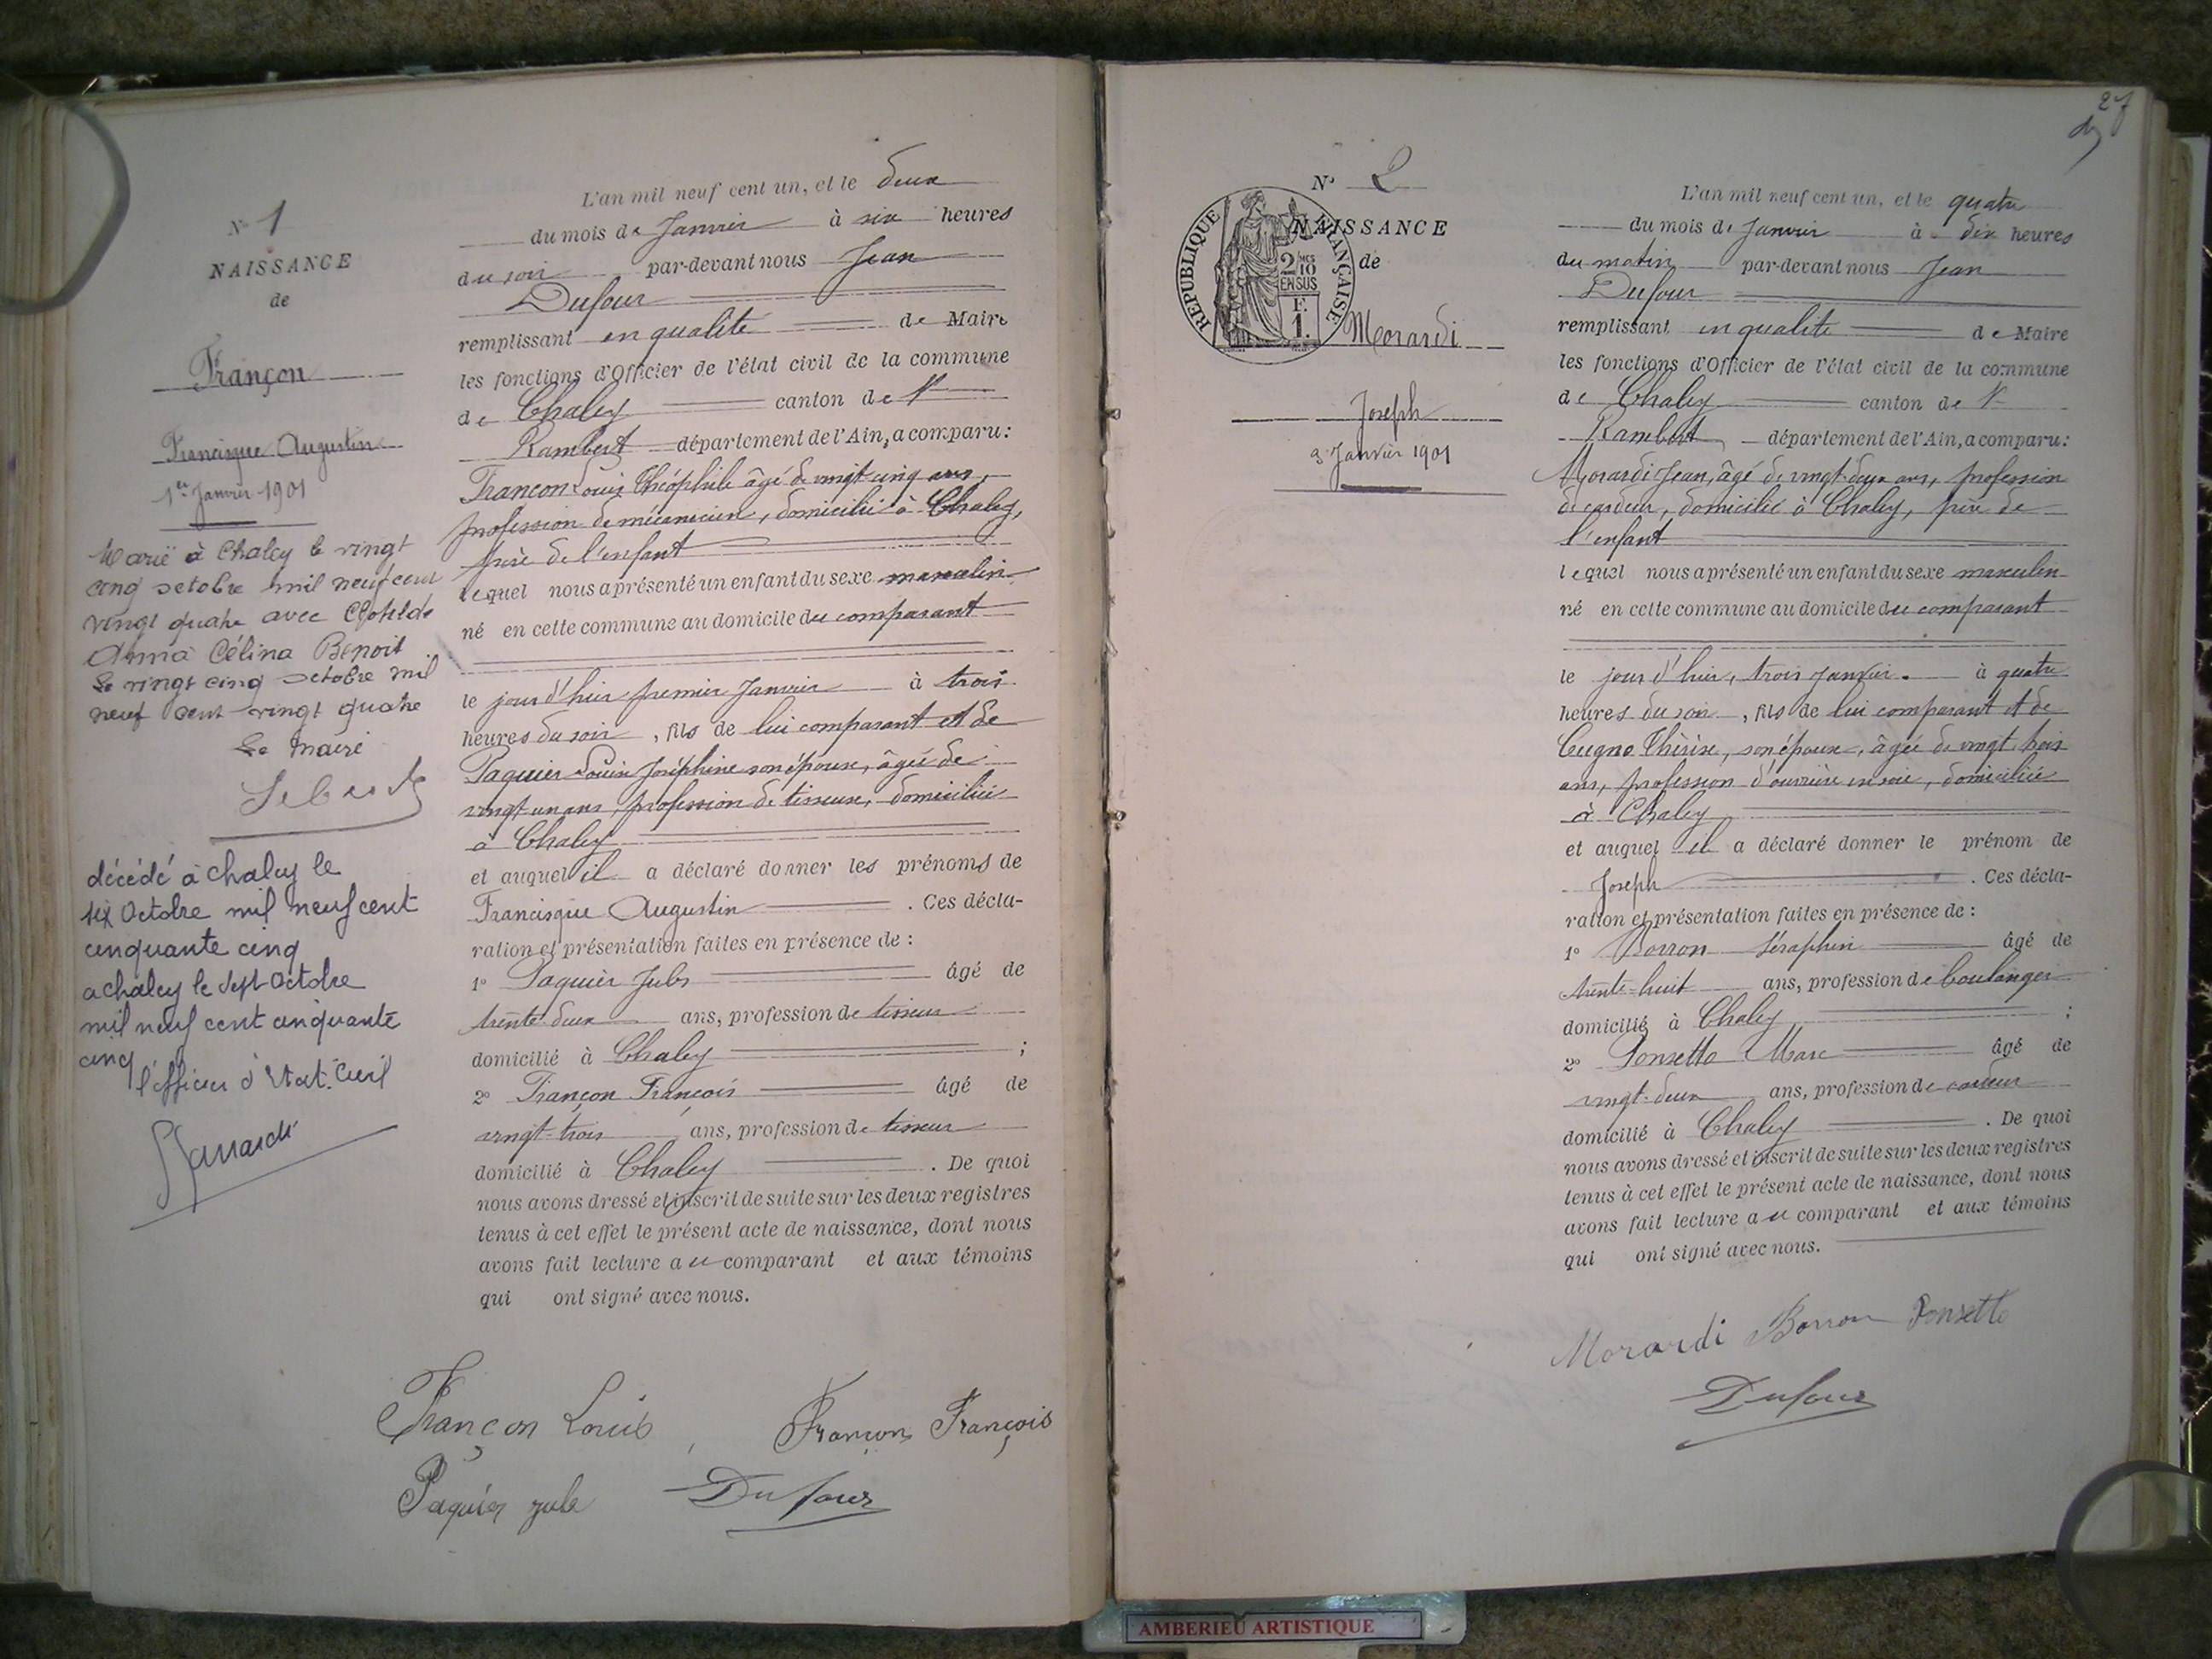 N° 1
NAISSANCE
de
Françon
Francisque Augustin
1er Janvier 1901
Marié à Chaley le vingt
cinq octobre mil neuf cent
vingt quatre avec Clotilde
Anna Célina Benoit
Le vingt cinq octobre mil
neuf cent vingt quatre
Le maire
décédé à chaley le
six Octobre mil neuf cent
cinquante cinq
a chaley le Sept Octobre
mil neuf cent cinquante
cinq
l'officier d'Etat Civil
L'an mil neuf cent un, et le deux
du mois de Janvier à six heures
du soir par-devant nous Jean
Dufour
remplissant en qualité de Maire
les fonctions d'Officier de l'état civil de la commune
de Chaley canton de St
Rambert département de l'Ain, a comparu :
Françon Louis Théophile âgé de vingt cinq ans,
profession de mécanicien, domicilié à Chaley,
père de l'enfant
lequel nous a présenté un enfant du sexe masculin
né en cette commune au domicile du comparant
le jour d'hier premier Janvier à trois
heures du soir, fils de lui comparant et de
Paquier Louise Joséphine son épouse, âgée de
vingt un ans, profession de tisseuse, domiciliée
à Chaley
et auquel il a déclaré donner les prénoms de
Francisque Augustin. Ces décla-
ration et présentation faites en présence de :
1° Paquier Jules âgé de
trente-deux ans, profession de tisseur
domicilié à Chaley ;
2° Françon François âgé de
vingt-trois ans, profession de tisseur
domicilié à Chaley. De quoi
nous avons dressé et inscrit de suite sur les deux registres
tenus à cet effet le présent acte de naissance, dont nous
avons fait lecture au comparant et aux témoins
qui ont signé avec nous.
Françon Louis Françon François
Paquier jule Dufour
27
N° 2
NAISSANCE
de
REPUBLIQUE FRANÇAISE
2/10 MES
EN SUS
F.
1.
Morardi
Joseph
3 Janvier 1901
L'an mil neuf cent un, et le quatre
du mois de Janvier à dix heures
du matin par-devant nous Jean
Dufour
remplissant en qualité de Maire
les fonctions d'Officier de l'état civil de la commune
de Chaley canton de St
Rambert département de l'Ain, a comparu :
Morardi Jean, âgé de vingt-deux ans, profession
de cardeur, domicilié à Chaley, père de
l'enfant
lequel nous a présenté un enfant du sexe masculin
né en cette commune au domicile du comparant
le jour d'hier, trois Janvier. à quatre
heures du soir, fils de lui comparant et de
Cugno Thérèse, son épouse, âgée de vingt trois
ans, profession d'ouvrière en soie, domiciliée
à Chaley
et auquel il a déclaré donner le prénom de
Joseph. Ces décla-
ration et présentation faites en présence de :
1° Borron Séraphin âgé de
trente-huit ans, profession de boulanger
domicilié à Chaley ;
2° Ponsetto Marc âgé de
vingt-deux ans, profession de cardeur
domicilié à Chaley. De quoi
nous avons dressé et inscrit de suite sur les deux registres
tenus à cet effet le présent acte de naissance, dont nous
avons fait lecture au comparant et aux témoins
qui ont signé avec nous.
Morardi Borron Ponsetto
Dufour
AMBERIEU ARTISTIQUE